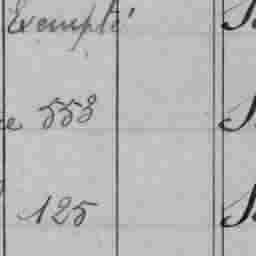 Exempté
553
125